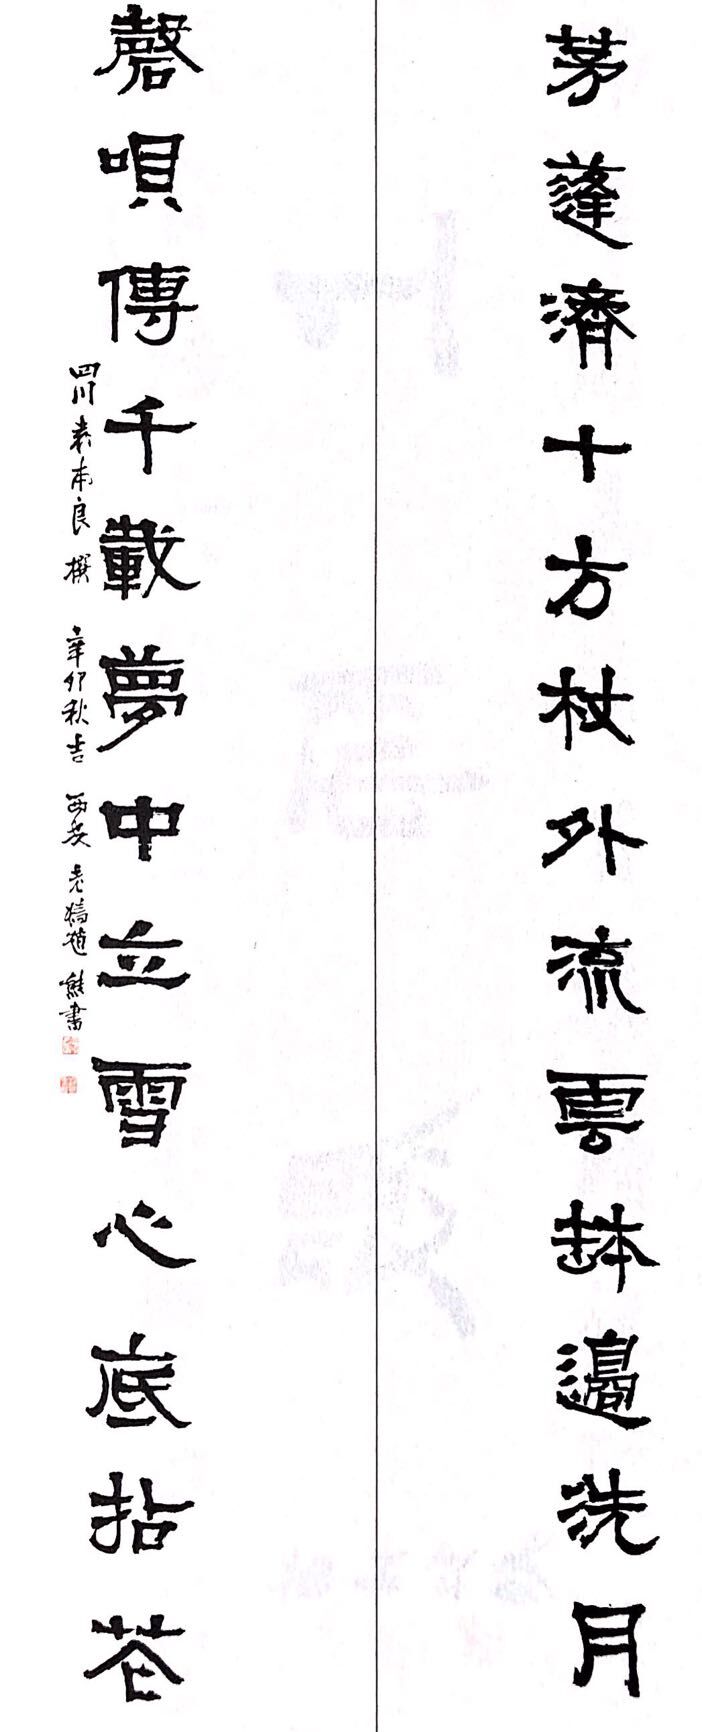 茅蓬濟十方杖外流雲鉢邊洗月
磬唄傳千載夢中立雪心底拈花
四川袁本良撰 辛卯秋吉 西安 老犒 趙熊書